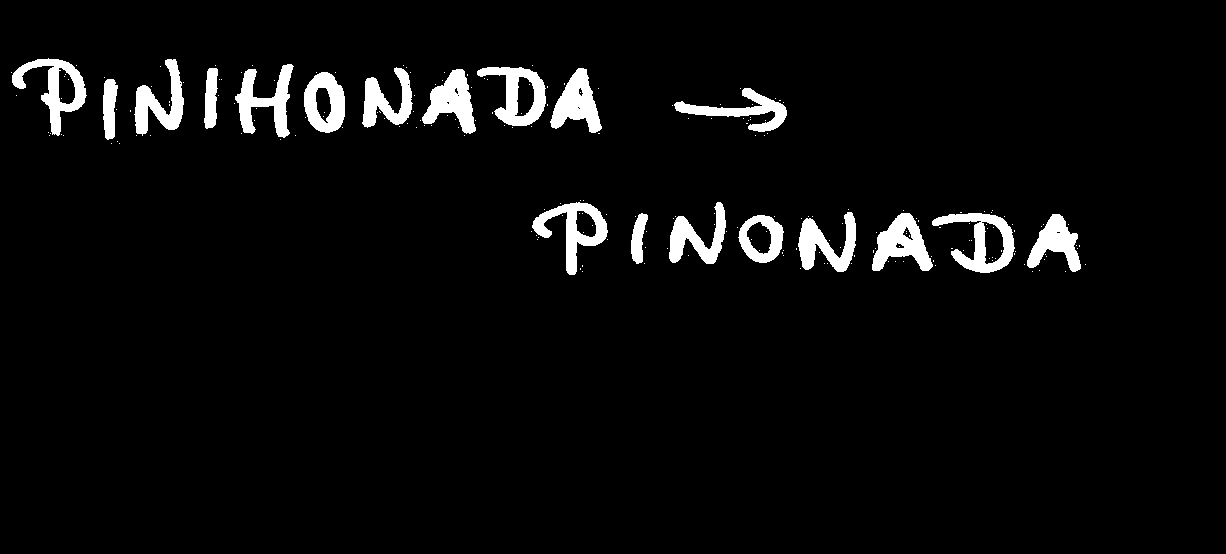 PINIHONADA →
PINONADA